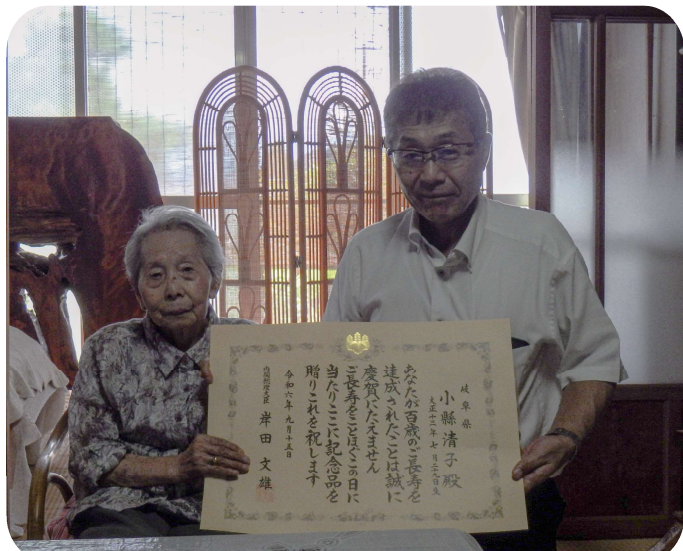 岐阜県
小縣清子殿
大正十三年七月二九日生
あなたが百歳のご長寿を
達成されたことは誠に
慶賀にたえません
ご長寿をことほぐこの日に
当たりここに記念品を
贈りこれを祝します
令和六年九月十五日
内閣総理大臣 岸田文雄